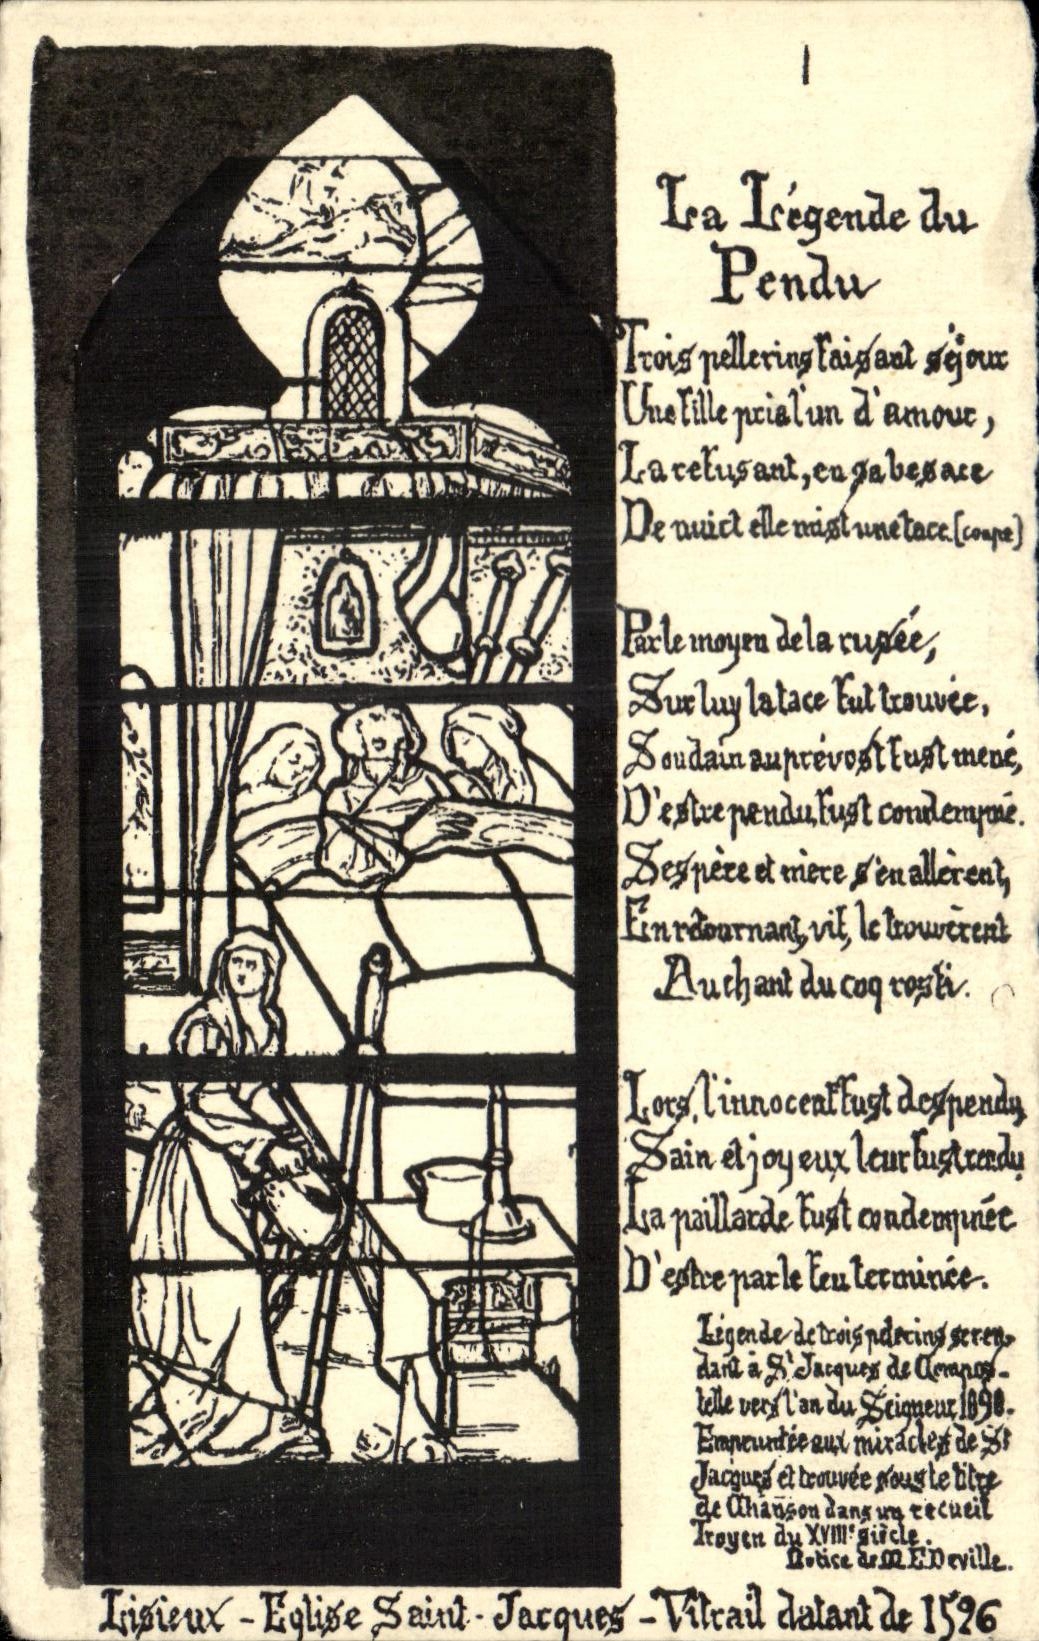 1
La Légende du
Pendu
Trois pellerins faisant séjour
Une fille pria l'un d'amour,
La refusant, en sa besace
De nuict elle mist une tace. (coupe)
Par le moyen de la rusée,
Sur luy la tace fut trouvée,
Soudain au prévost fust mené,
D'estre pendu, fust condempné.
Ses père et mère s'en allèrent,
En retournant, vif, le trouvèrent
Au chant du coq rosti.
Lors, l'innocent fust despendu,
Sain et joyeux leur fust rendu,
La paillarde fust condempnée
D'estre par le feu terminée.
Légende de trois pelerins se ren-
dant à St Jacques de Compos-
telle vers l'an du Seigneur 1090.
Empruntée aux miracles de St
Jacques et trouvée sous le titre
de Chanson dans un recueil
Troyen du XVIIIe siècle.
Notice de M. E. Deville.
Lisieux - Eglise Saint-Jacques - Vitrail datant de 1526